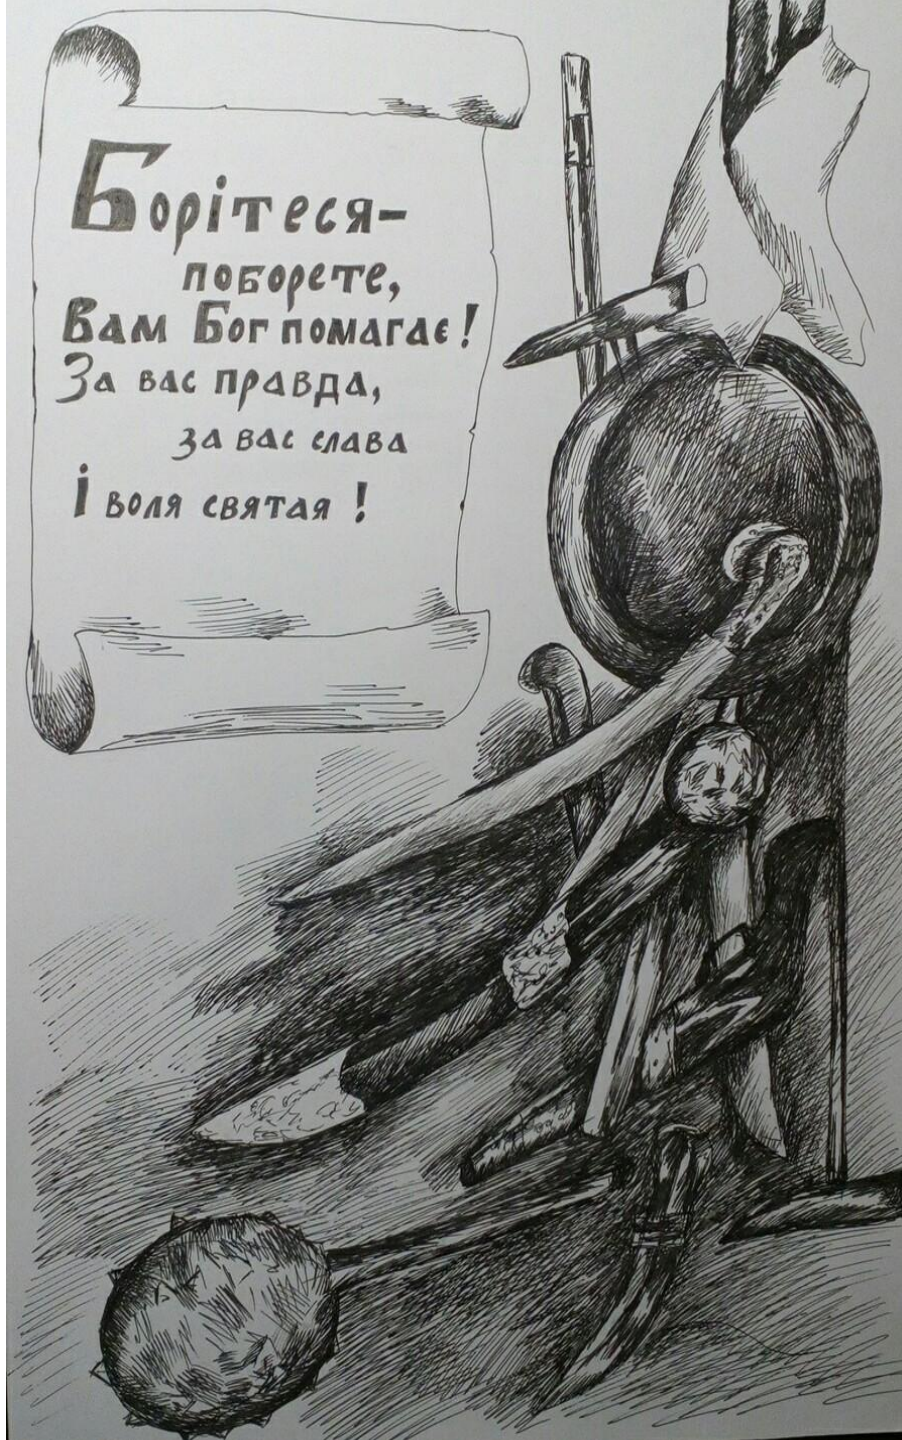 Борітеся-
поборете,
Вам Бог помагає!
За вас правда,
за вас слава
і воля святая!